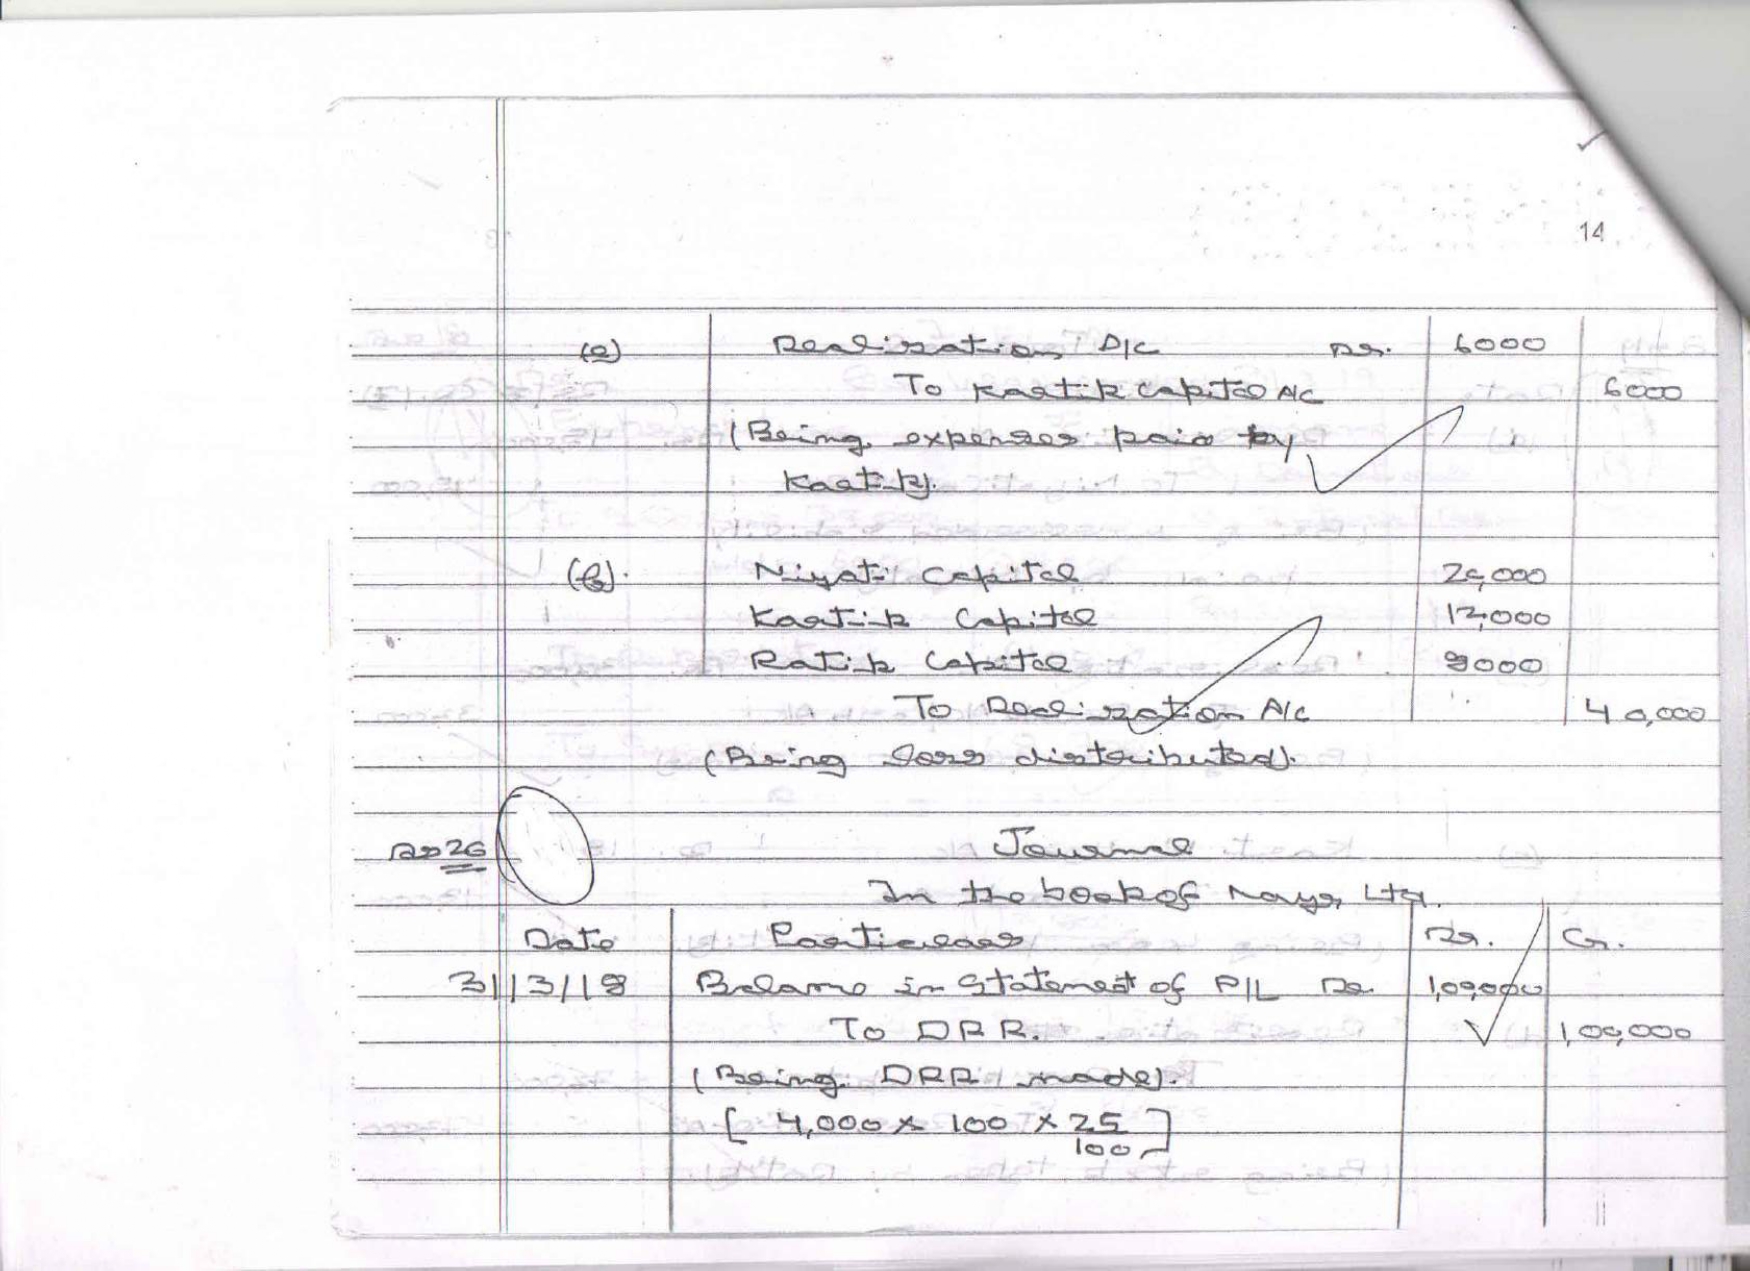 14
(e) Realisation A/c Dr. 6000
To Kartik Capital A/c 6000
(Being expenses paid by
Kartik).
Niyati Capital 20,000
Kartik Capital 12,000
Ratik Capital 8000
To Realisation A/c 40,000
(Being loss distributed).
26 Journal
In the book of Naya Ltd.
Date Particulars Dr. Cr.
31/3/18 Balance in Statement of P/L Dr. 1,00,000
To DRR. 1,00,000
(Being DRR made).
[4,000 × 100 × 25
100]